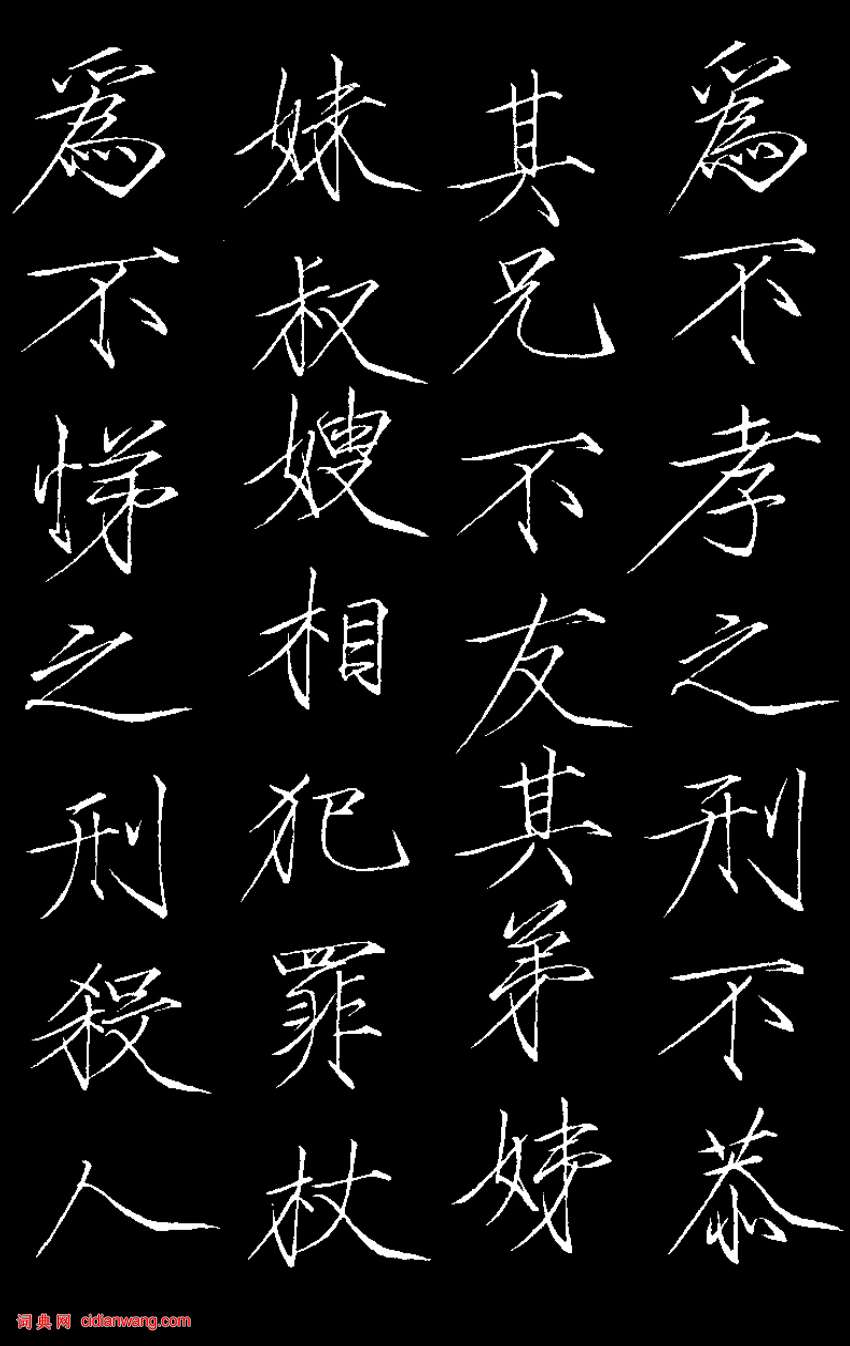 為不孝之刑不恭
其兄不友其弟姊
妹叔嫂相犯罪杖
為不悌之刑殺人
词典网 cidianwang.com